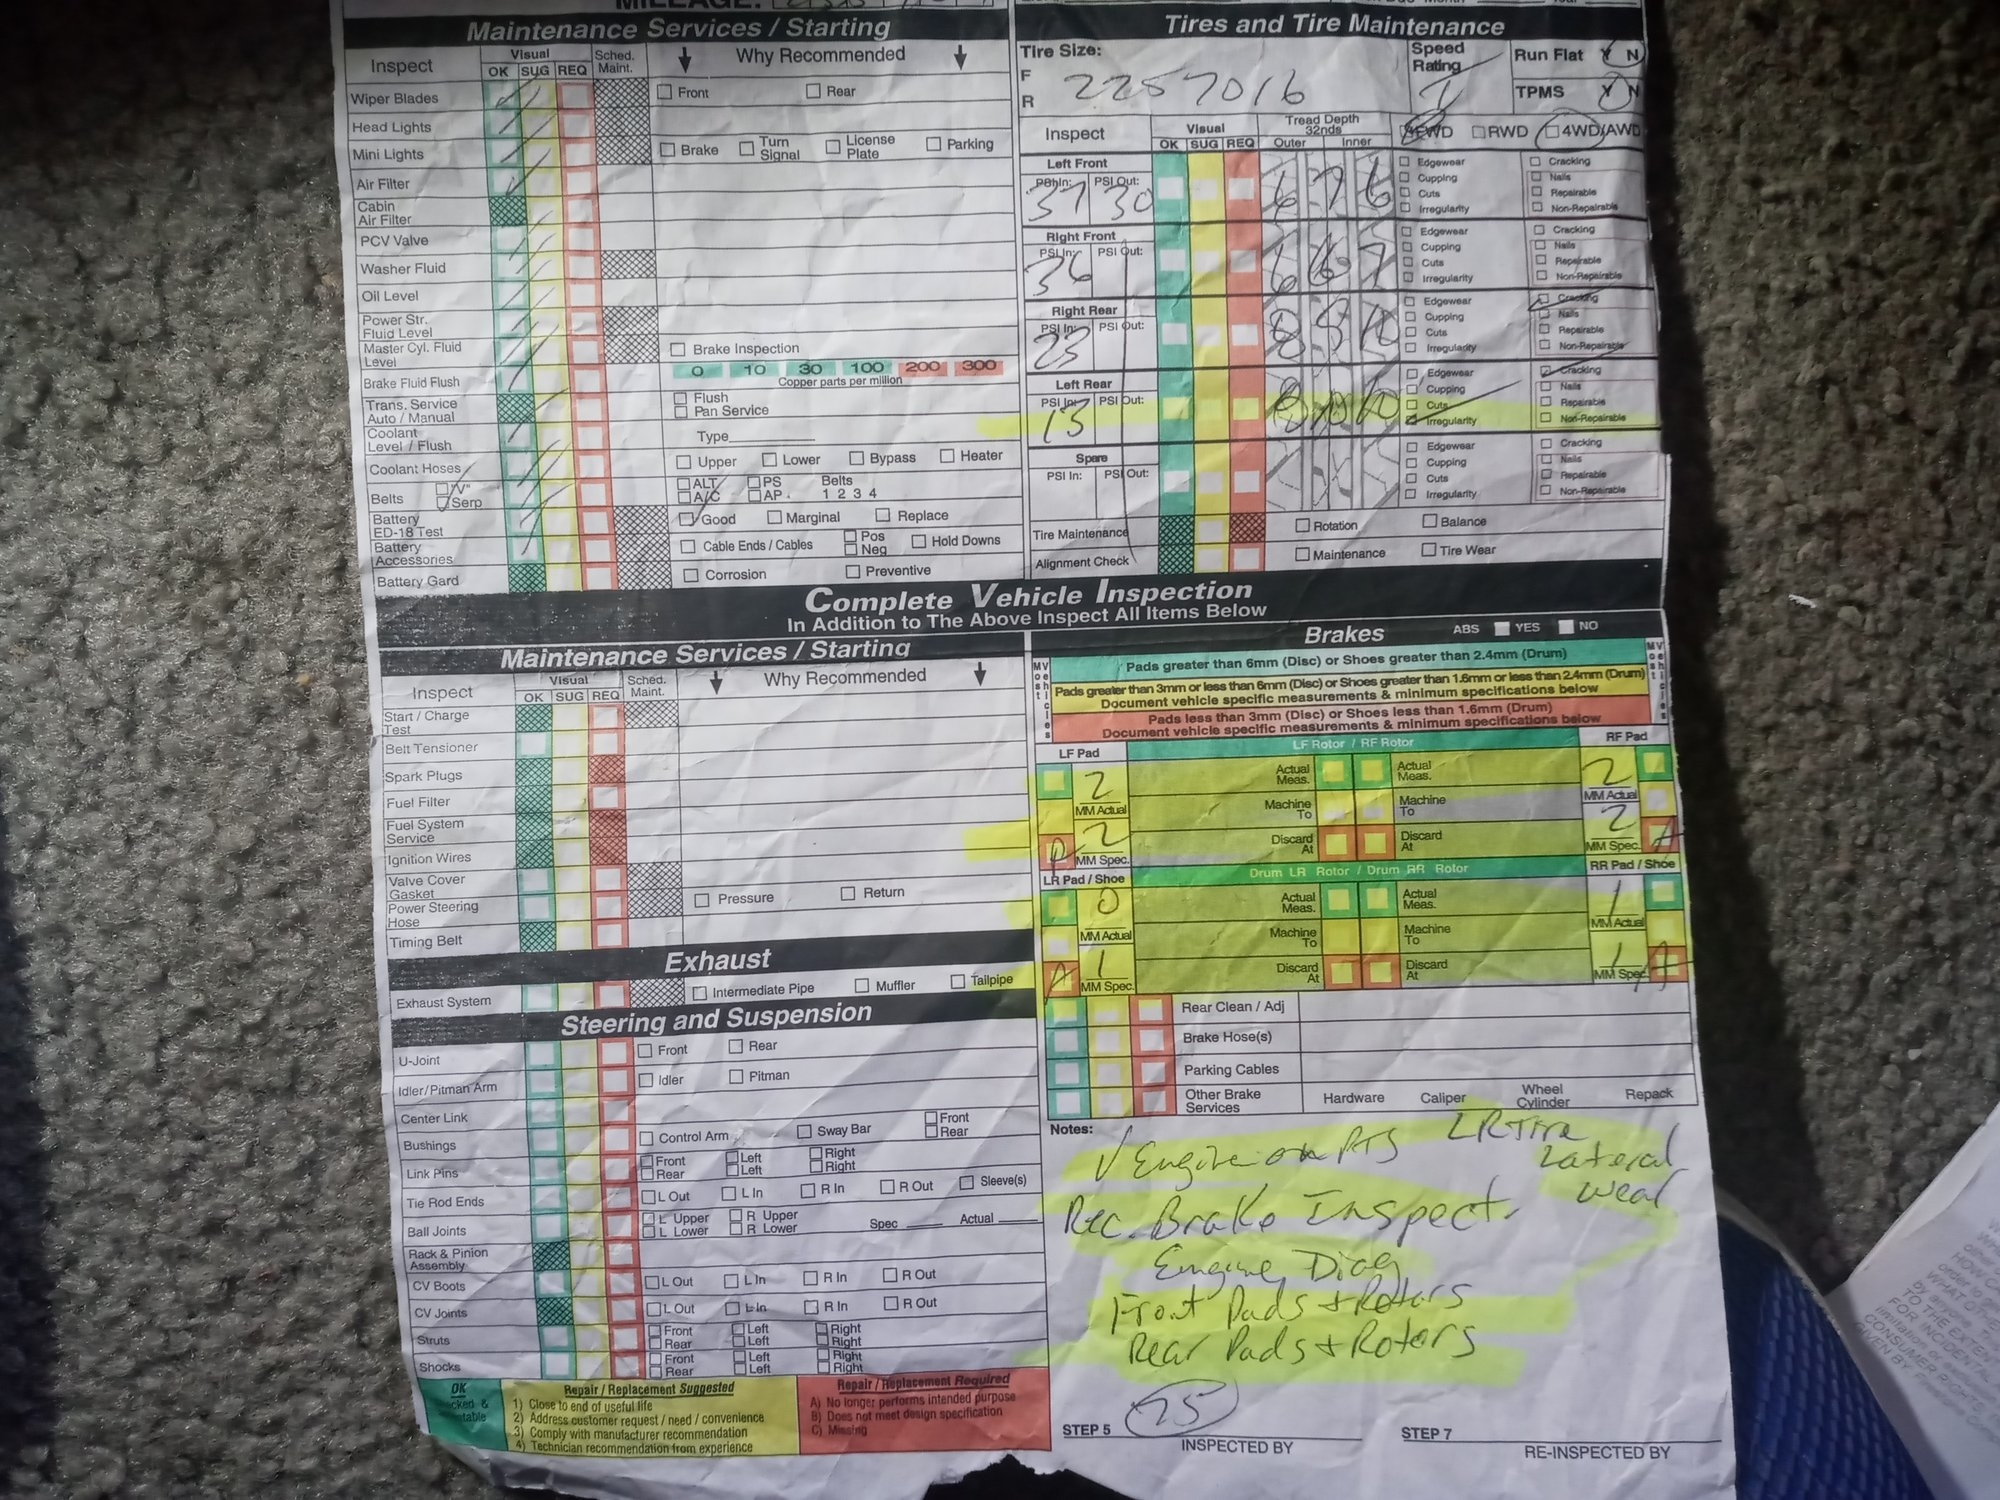 MILEAGE:
Maintenance Services / Starting
Inspect
Visual
OK SUG REQ
Sched. Maint.
Why Recommended
Wiper Blades
Front Rear
Head Lights
Mini Lights
Brake Turn Signal License Plate Parking
Air Filter
Cabin Air Filter
PCV Valve
Washer Fluid
Oil Level
Power Str. Fluid Level
Master Cyl. Fluid Level
Brake Inspection
Brake Fluid Flush
0 10 30 100 200 300
Copper parts per million
Trans. Service Auto / Manual
Flush
Pan Service
Coolant Level / Flush
Type
Coolant Hoses
Upper Lower Bypass Heater
Belts "V" Serp
ALT PS Belts
A/C AP 1 2 3 4
Battery ED-18 Test
Good Marginal Replace
Battery Accessories
Cable Ends / Cables Pos Neg Hold Downs
Battery Gard
Corrosion Preventive
Tires and Tire Maintenance
Tire Size:
F
R
2257016
Speed Rating
T
Run Flat Y N
TPMS Y N
Inspect
Visual
OK SUG REQ
Tread Depth 32nds
Outer Inner
FWD RWD 4WD/AWD
Left Front
PSI In: PSI Out:
37 30
6 7 6
Edgewear Cracking
Cupping Nails
Cuts Repairable
Irregularity Non-Repairable
Right Front
PSI In: PSI Out:
36
6 6 7
Edgewear Cracking
Cupping Nails
Cuts Repairable
Irregularity Non-Repairable
Right Rear
PSI In: PSI Out:
23
Edgewear Cracking
Cupping Nails
Cuts Repairable
Irregularity Non-Repairable
Left Rear
PSI In: PSI Out:
15
Edgewear Cracking
Cupping Nails
Cuts Repairable
Irregularity Non-Repairable
Spare
PSI In: PSI Out:
Edgewear Cracking
Cupping Nails
Cuts Repairable
Irregularity Non-Repairable
Tire Maintenance
Rotation Balance
Alignment Check
Maintenance Tire Wear
Complete Vehicle Inspection
In Addition to The Above Inspect All Items Below
Maintenance Services / Starting
Inspect
Visual
OK SUG REQ
Sched. Maint.
Why Recommended
Start / Charge Test
Belt Tensioner
Spark Plugs
Fuel Filter
Fuel System Service
Ignition Wires
Valve Cover Gasket
Power Steering Hose
Pressure Return
Timing Belt
Exhaust
Exhaust System
Intermediate Pipe Muffler Tailpipe
Steering and Suspension
U-Joint
Front Rear
Idler/Pitman Arm
Idler Pitman
Center Link
Bushings
Control Arm Sway Bar Front Rear
Link Pins
Front Left Right
Rear Left Right
Tie Rod Ends
L Out L In R In R Out Sleeve(s)
Ball Joints
L Upper R Upper
L Lower R Lower
Spec Actual
Rack & Pinion Assembly
CV Boots
L Out L In R In R Out
CV Joints
L Out L In R In R Out
Struts
Front Left Right
Rear Left Right
Shocks
Front Left Right
Rear Left Right
OK
Repair / Replacement Suggested
1) Close to end of useful life
2) Address customer request / need / convenience
3) Comply with manufacturer recommendation
4) Technician recommendation from experience
Repair / Replacement Required
A) No longer performs intended purpose
B) Does not meet design specification
C) Missing
Brakes
ABS YES NO
Most Vehicles
Pads greater than 6mm (Disc) or Shoes greater than 2.4mm (Drum)
Pads greater than 3mm or less than 6mm (Disc) or Shoes greater than 1.6mm or less than 2.4mm (Drum)
Document vehicle specific measurements & minimum specifications below
Pads less than 3mm (Disc) or Shoes less than 1.6mm (Drum)
Document vehicle specific measurements & minimum specifications below
Most Vehicles
LF Pad
LF Rotor / RF Rotor
RF Pad
2
MM Actual
2
MM Spec.
A
Actual Meas. Actual Meas.
Machine To Machine To
Discard At Discard At
2
MM Actual
2
MM Spec.
A
LR Pad / Shoe
Drum LR Rotor / Drum RR Rotor
RR Pad / Shoe
0
MM Actual
1
MM Spec.
A
Actual Meas. Actual Meas.
Machine To Machine To
Discard At Discard At
1
MM Actual
1
MM Spec.
A
Rear Clean / Adj
Brake Hose(s)
Parking Cables
Other Brake Services
Hardware Caliper Wheel Cylinder Repack
Notes:
√ Engine on RTS
LR Tire
Lateral
wear
Rec. Brake Inspect.
Engine Diag
Front Pads + Rotors
Rear Pads + Rotors
STEP 5
INSPECTED BY
STEP 7
RE-INSPECTED BY